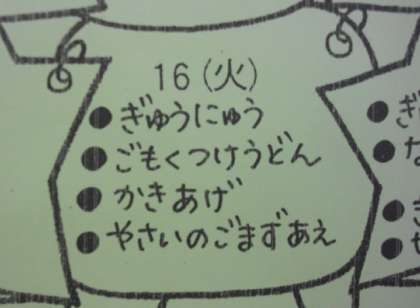 16(火)
●ぎゅうにゅう
●ごもくつけうどん
●かきあげ
●やさいのごまずあえ